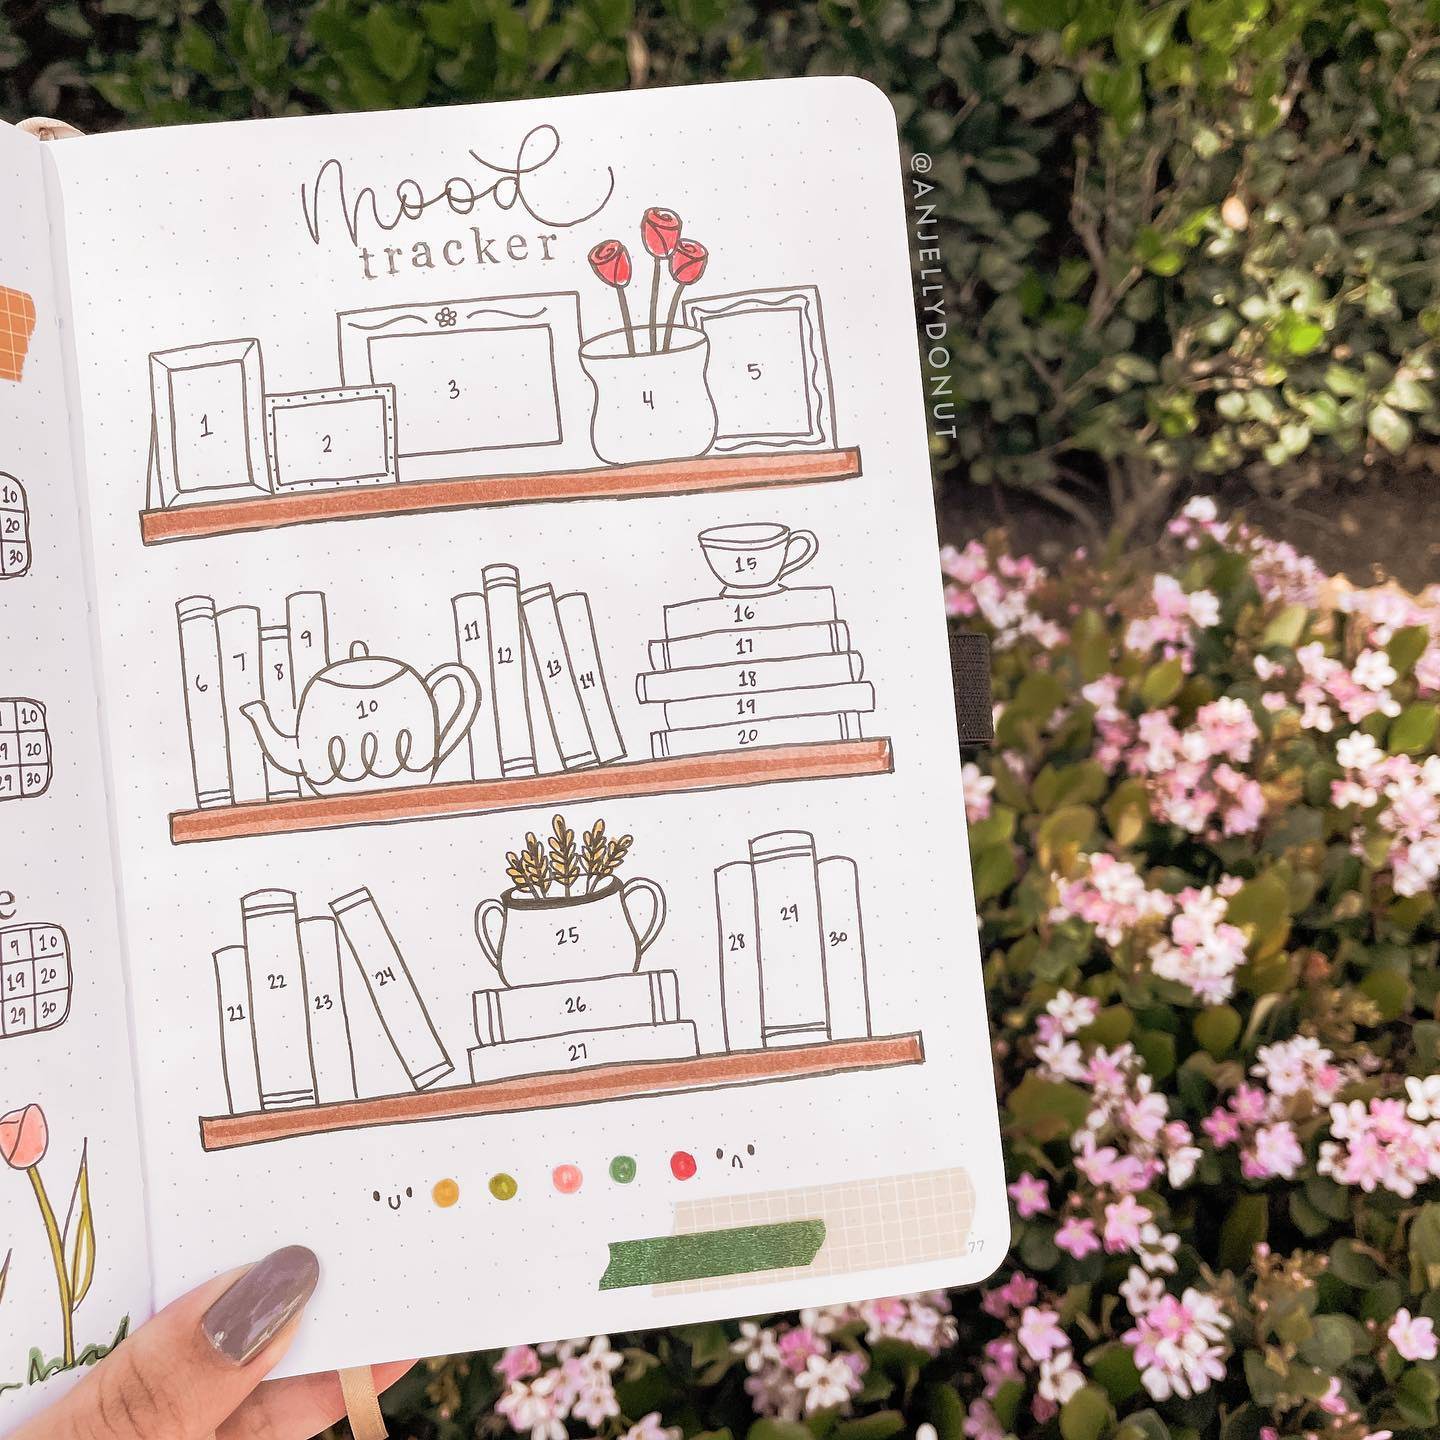 mood
tracker
1
2
3
4
5
6
7
8
9
10
11
12
13
14
15
16
17
18
19
20
21
22
23
24
25
26
27
28
29
30
77
@ANJELLYDONUT
10
20
30
10
9 20
29 30
e
9 10
19 20
29 30